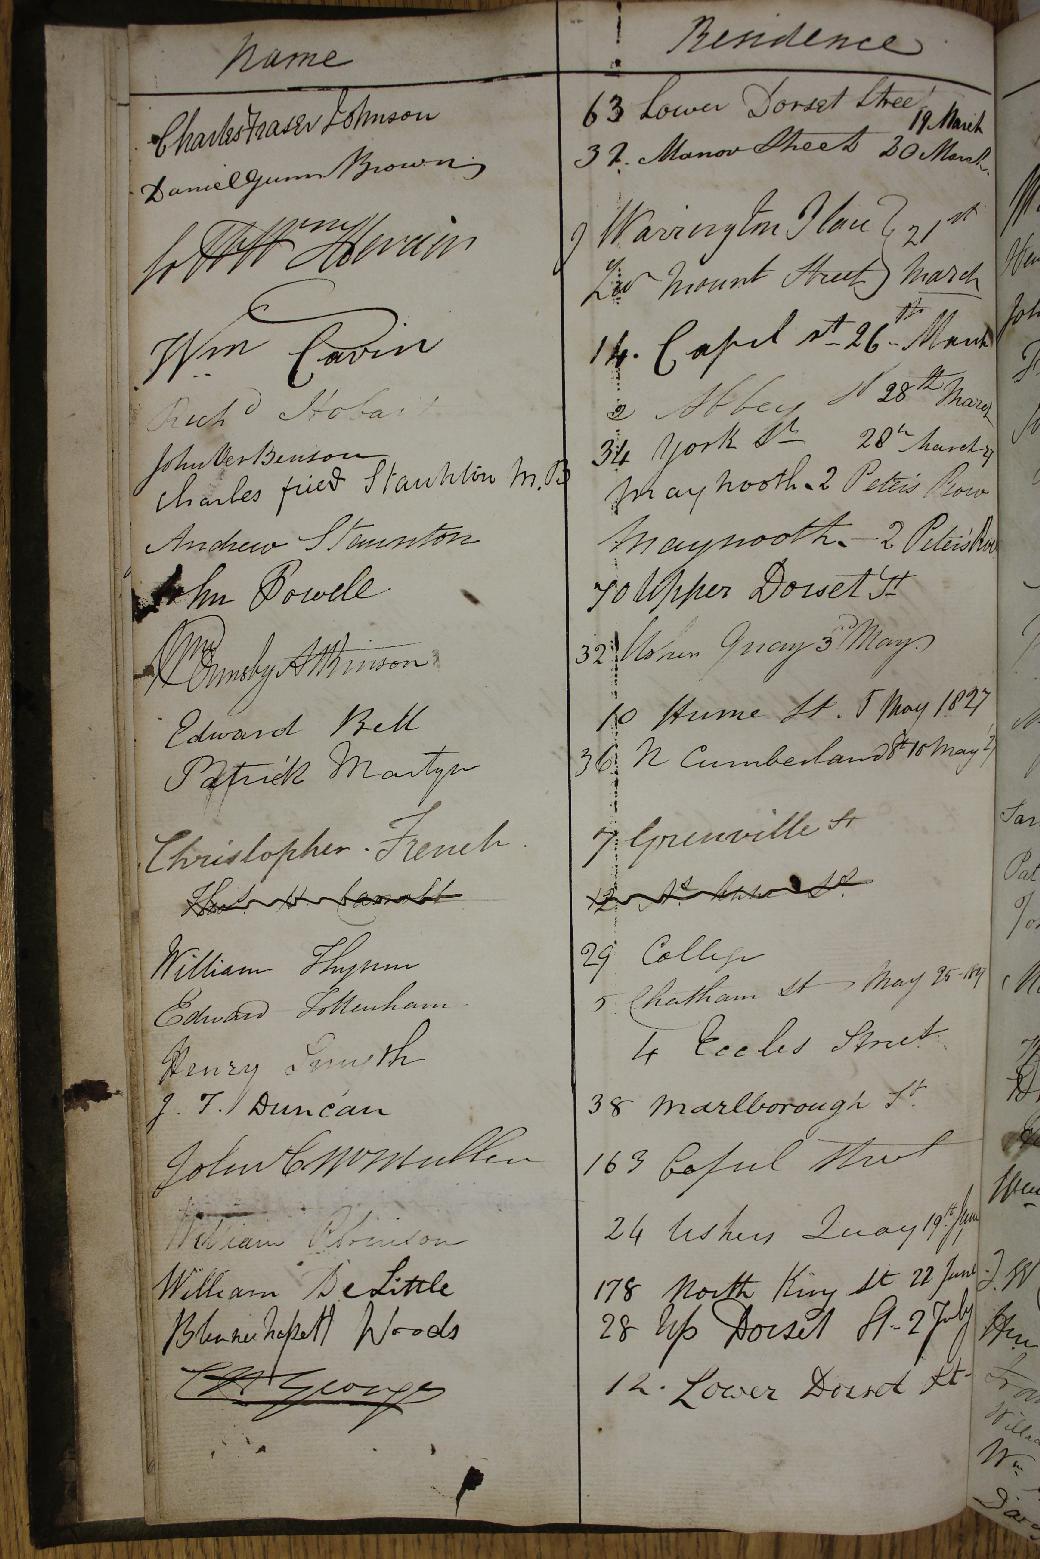 Name Residence
Charles Fraser Johnson 63 Lower Dorset Street 19 March
Daniel Gunn Brown 32. Manor Street 20 March
Warrington Place 21st
Lwr Mount Street March
Wm Cavin 14. Capel st 26th March
Richd Hobart 2 Abbey St 28th March
John Benson 34 York St 28th March 27
Charles fred Staunton M.B Maynooth - 2 Peters Row
Andrew Staunton Maynooth - 2 Peters Row
John Powell 70 Upper Dorset St
Ormsby Atkinson 32 Ushers Quay 3d May
Edward Bell 10 Hume St. 5 May 1827
Patrick Martyn 36 N Cumberland St 10 May 27
Christopher French 7 Grenville St
12 St
William Flynn 29 College
Edward Tottenham 5 Chatham St May 25 - 1827
Henry Smyth 4 Eccles Street
J. T. Duncan 38 Marlborough St
John C McMullen 163 Capel Street
William Robinson 24 Ushers Quay 19th June
William De Little 178 North King St 22 June
Blennerhassett Woods 28 Up Dorset St - 2 July
George 12. Lower Dorset St